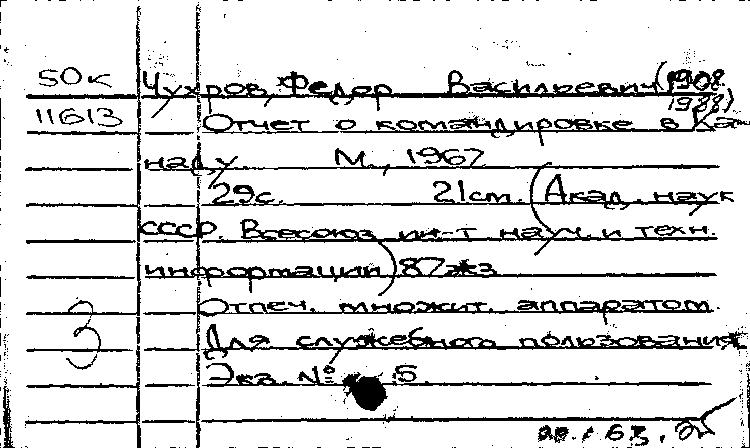 50к Чухров, Федор Васильевич (1908
1988)
11613 Отчет о командировке в Ка-
наду. М., 1967
29с. 21см. (Акад. наук
СССР. Всесоюз. ин-т науч. и техн.
информации) 87экз
Отпеч. множит. аппаратом.
Для служебного пользования
3
Экз. № 5.
63.